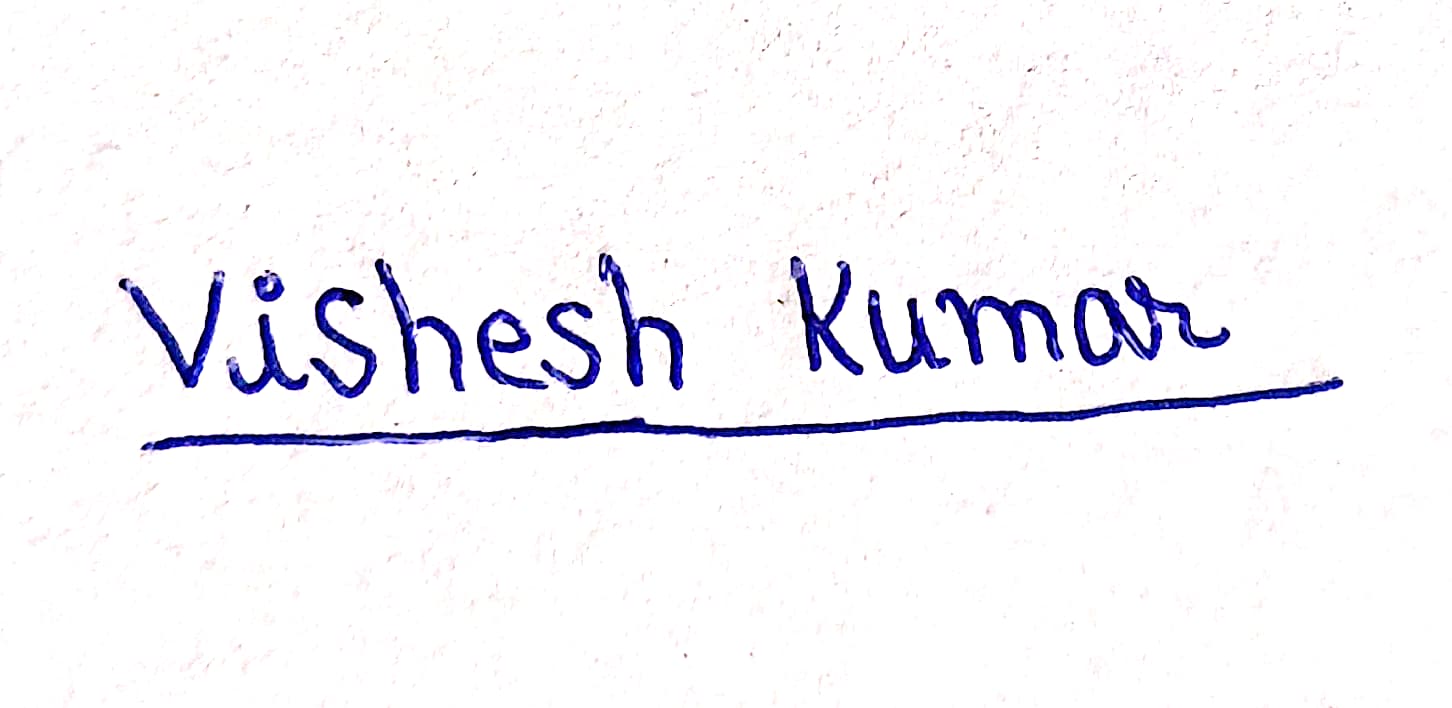 Vishesh Kumar